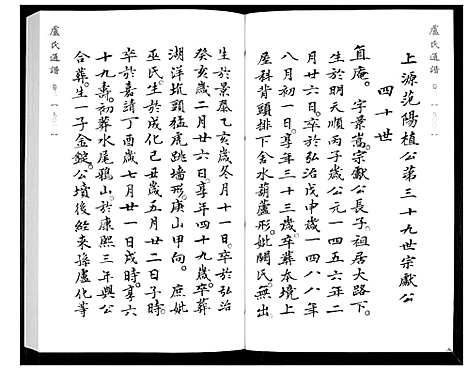 盧氏通譜
上源范陽植公第三十九世宗獻公
四十世
直庵。字景嵩。宗獻公長子。祖居大路下。
生於明天順丙子歲公元一四五六年二
月廿六日。卒於弘治戊申歲一四八八年
八月初一日。享年三十三歲。卒葬本境上
屋科背頭排下金水葫蘆形。妣闕氏。無出
生於景泰乙亥歲冬月十一日。卒於弘治
癸亥歲二月廿六日。享年四十九歲。卒葬
湖洋坑頭猛虎跳墻形。庚山甲向。庶妣
巫氏。生於成化己丑歲五月廿二日子時。
卒於嘉請丁酉歲七月廿一日戌時。享六
十九壽。初葬水尾鵝山。於康熙三年與公
合葬。生一子金錠。公墳後經来孫盧化等
盧氏通譜